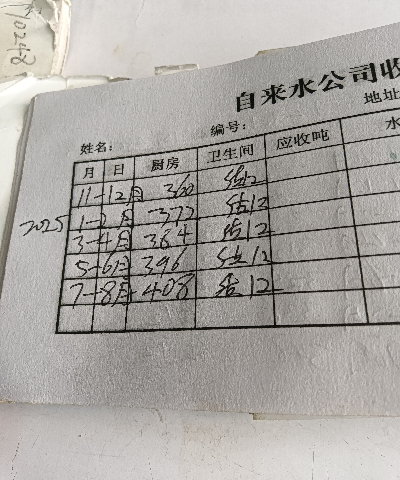 70248
自来水公司收
姓名： 编号： 地址
月 日 厨房 卫生间 应收吨 水
11-12月 360 估12
2025 1-2月 372 估12
3-4月 384 估12
5-6月 396 估12
7-8月 408 估12